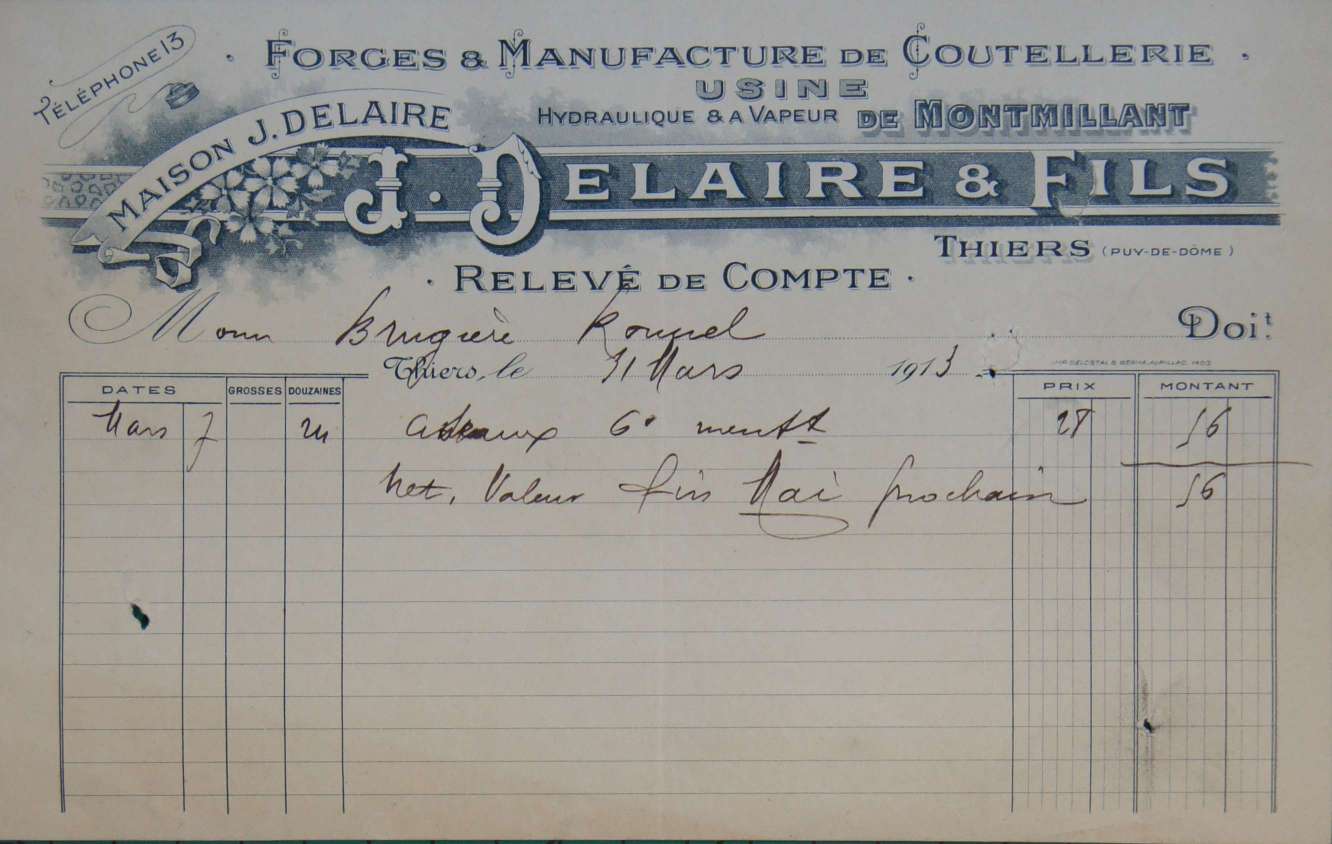 TÉLÉPHONE 13
· FORGES & MANUFACTURE DE COUTELLERIE ·
USINE
HYDRAULIQUE & A VAPEUR DE MONTMILLANT
MAISON J. DELAIRE
J. DELAIRE & FILS
THIERS (PUY-DE-DÔME)
· RELEVÉ DE COMPTE ·
M Brugière Doit
Thiers, le 31 Mars 1913
DATES GROSSES DOUZAINES PRIX MONTANT
Mars 7 24 28 56
Net, Valeur fin Mai prochain 56